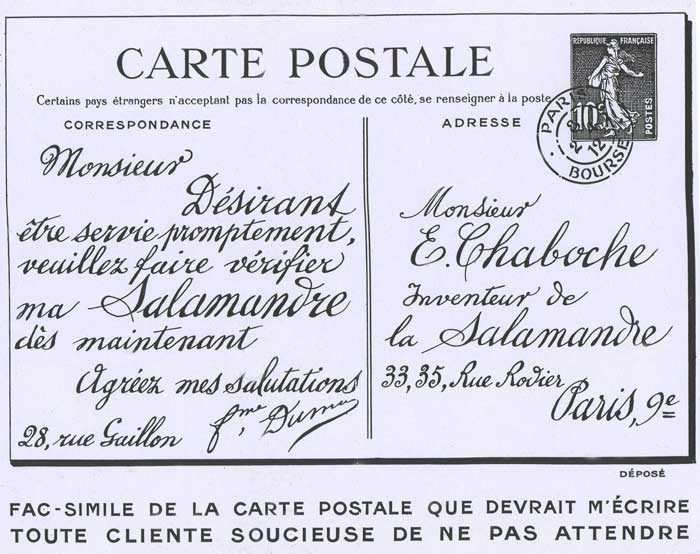 CARTE POSTALE
Certains pays étrangers n'acceptant pas la correspondance de ce côté, se renseigner à la poste
CORRESPONDANCE
Monsieur
Désirant
être servie promptement,
veuillez faire vérifier
ma Salamandre
dès maintenant
Agréez mes salutations
28, rue Gaillon
ADRESSE
Monsieur
E. Chaboche
Inventeur de
la Salamandre
33, 35, Rue Rodier
Paris, 9e
RÉPUBLIQUE FRANÇAISE
10c
POSTES
PARIS
12
BOURSE
DÉPOSÉ
FAC-SIMILE DE LA CARTE POSTALE QUE DEVRAIT M'ÉCRIRE
TOUTE CLIENTE SOUCIEUSE DE NE PAS ATTENDRE